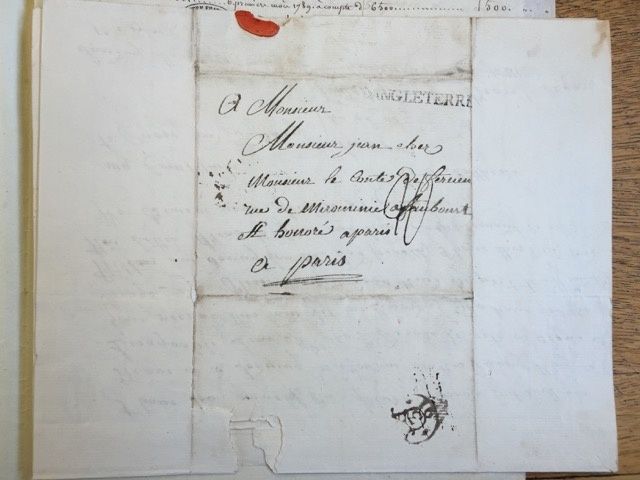 6 premiers mois 1789. a compte d 6500 1500.
D'ANGLETERRE
A Monsieur
Monsieur jean cher
Monsieur le Conte de fercen
rue de Mirouminie faubourt
St honoré a paris
a paris